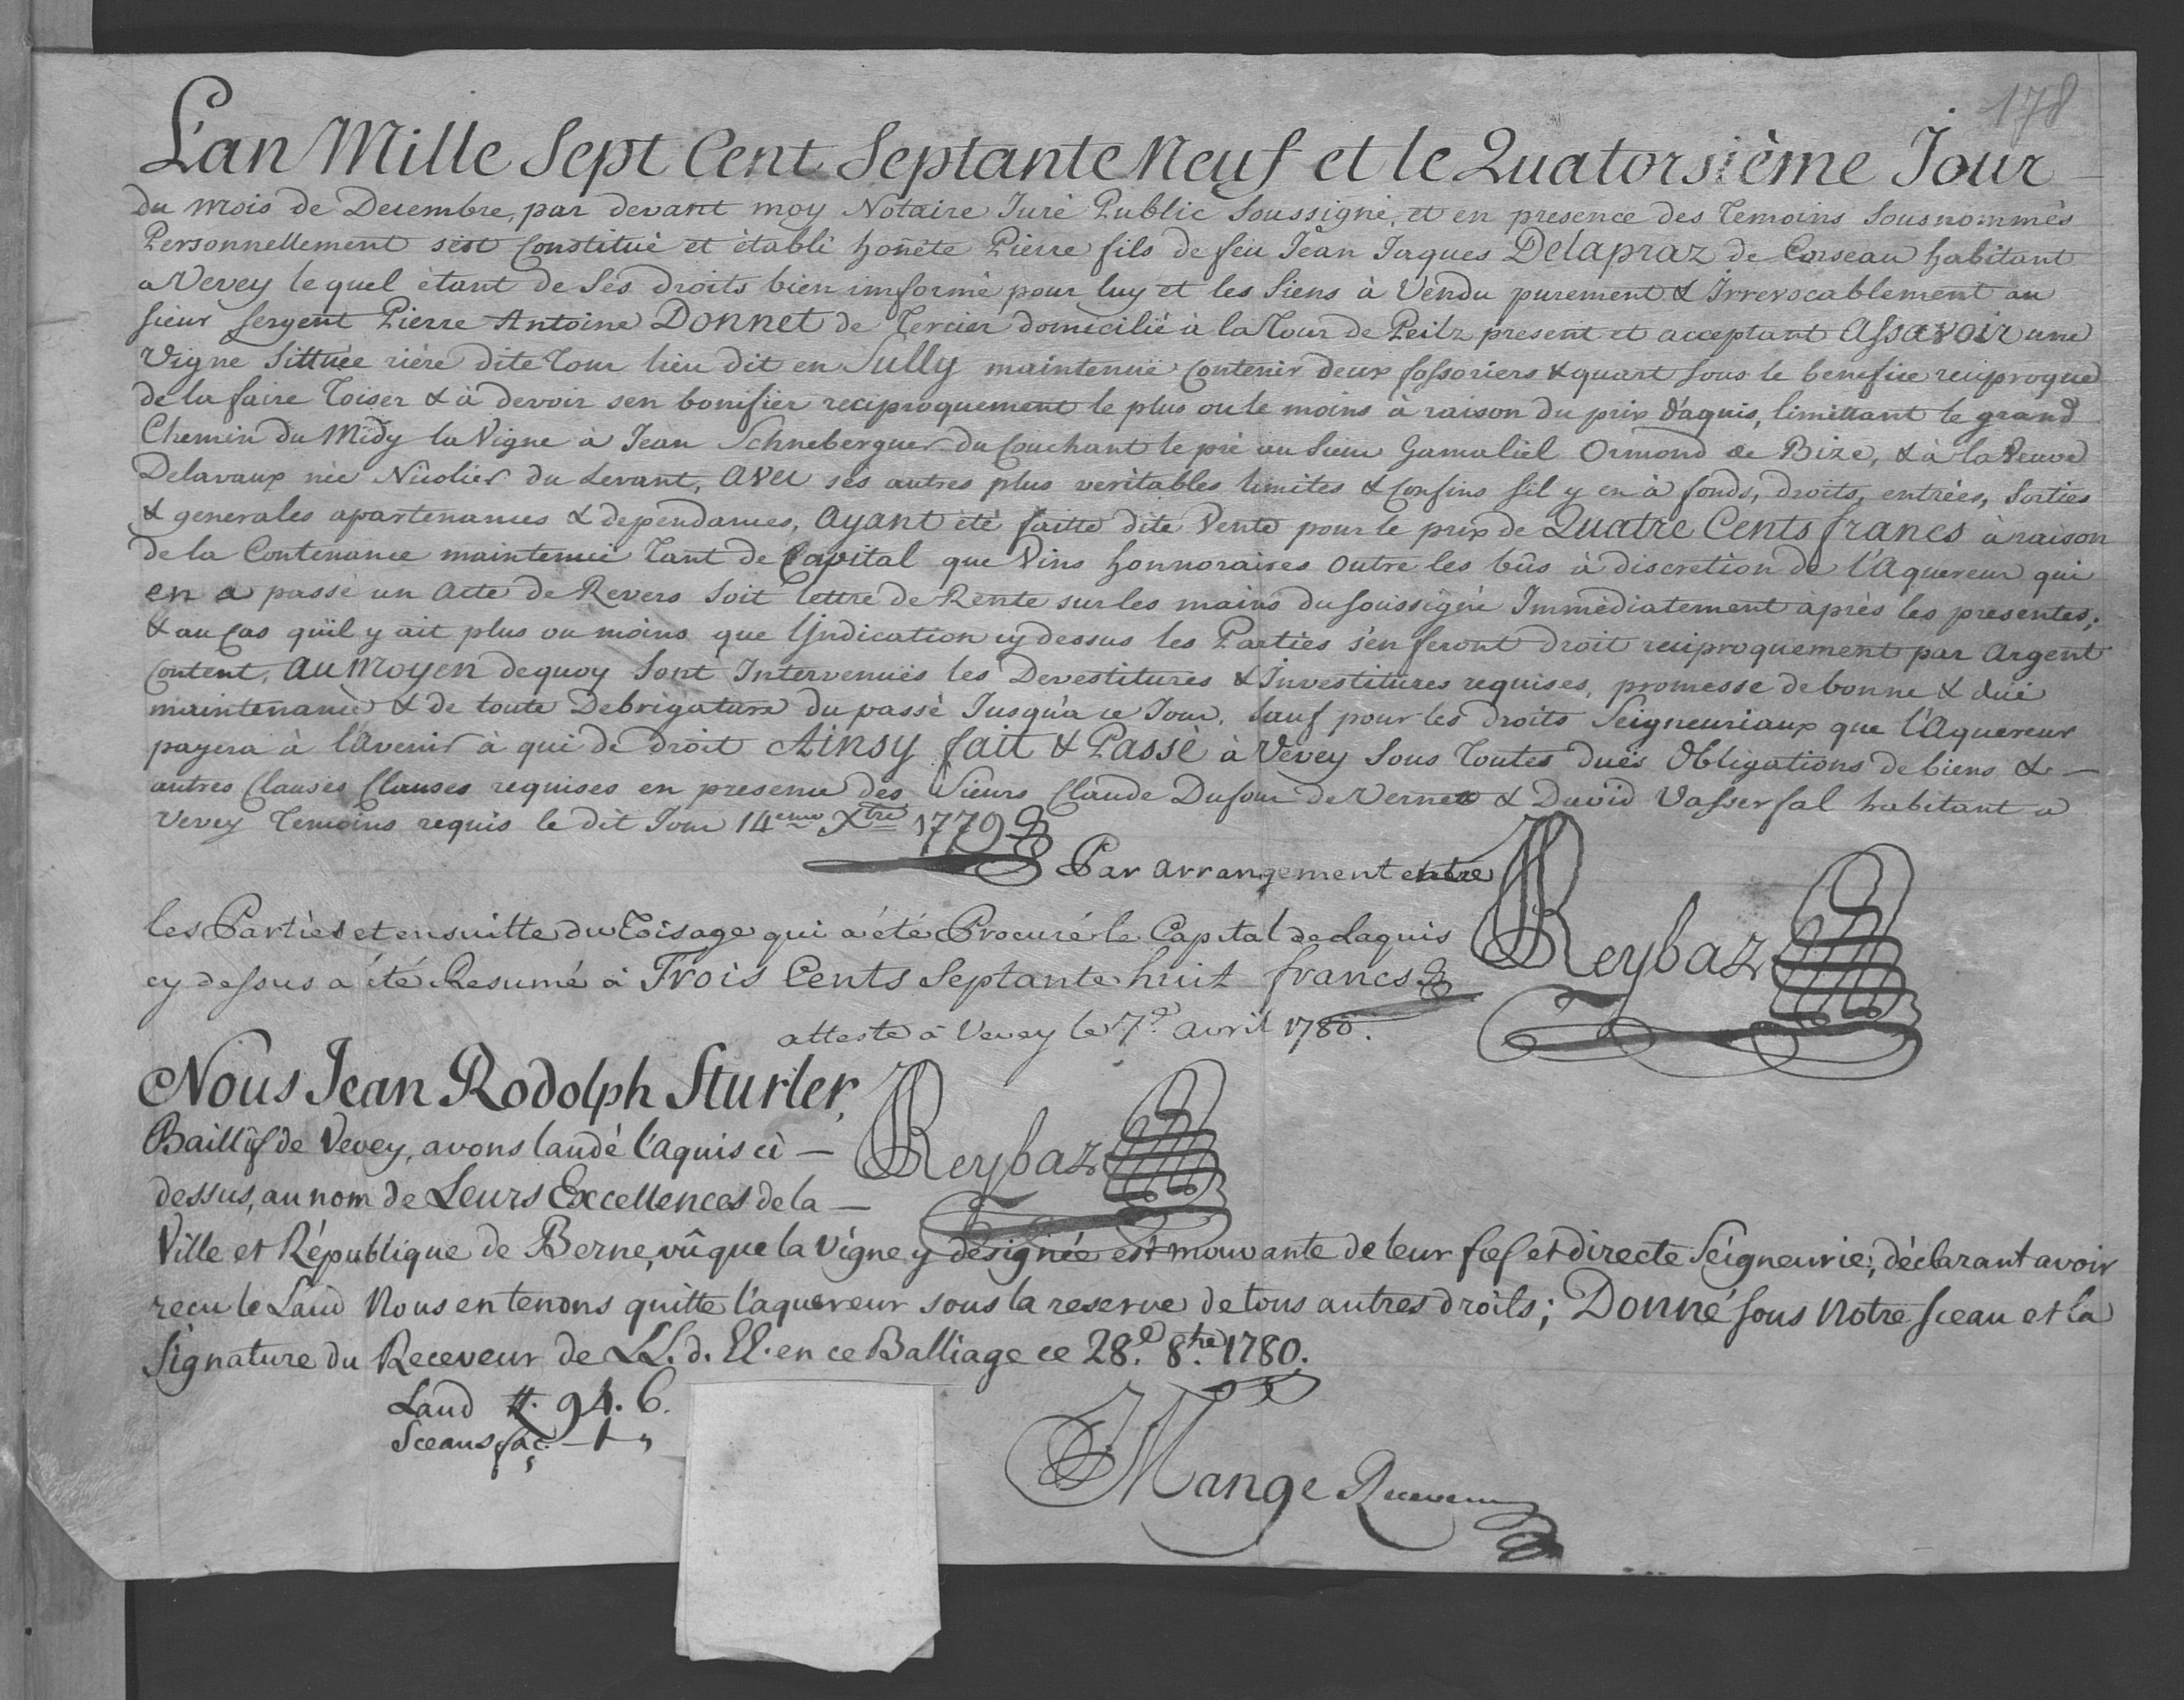 178
L'an Mille Sept Cent Septante Neuf et le Quatorsième Jour
du mois de Decembre, par devant moy Notaire Juré Public Soussigné, et en presence des Temoins Sousnommés
Personnellement s'est Constitué et établi honête Pierre fils de feu Jean Jaques Delapraz de Corseau habitant
a Vevey le quel étant de Ses droits bien imformé pour luy et les Siens à Vendu purement & Irrevocablement au
Sieur Sergent Pierre Antoine Donnet de Tercier domicilié à la Tour de Peilz present et acceptant Assavoir une
Vigne Sittuée riére dite Tour lieu dit en Sully maintenuë Contenir deux fossoriers & quart sous le benefice reciproque
de la faire Toiser & à devoir sen bonifier reciproquement le plus ou le moins à raison du prix d'aquis, limittant le grand
Chemin du Midy la Vigne à Jean Schneberguer du Couchant le pré au Sieur Gamaliel Ormond de Bize, & à la Veuve
Delavaux née Nicolier du Levant, avec ses autres plus veritables limites & Confins sil y en à fonds, droits, entrées, Sorties
& generales apartenances & dependances, Ayant été faitte dite Vente pour le prix de Quatre Cents francs à raison
de la Contenance maintenuë Tant de Capital que Vins honnoraires outre les bûs à discretion de l'Aquereur qui
en a passé un Acte de Revers Soit lettre de Rente sur les mains du soussigné Immédiatement après les presentes;
& au Cas quil y ait plus ou moins que l'Indication cy dessus les Parties s'en feront droit reciproquement par Argent
Content, Au Moyen dequoy Sont Intervenuës les Devestitures & Investitures requises, promesse de bonne & duë
maintenance & de toute Debrigature du passé Jusqu'à ce Jour, Sauf pour les droits Seigneuriaux que l'Aquereur
payera à l'Avenir à qui de droit Ainsy fait & Passé à Vevey Sous Toutes duës Obligations de biens & —
autres Clauses Clauses requises en presence des Sieurs Claude Dufour de Vernex & David Vassersal habitant a
Vevey Temoins requis le dit Jour 14eme Xbre 1779
Par arrangement entre
les Parties et ensuitte du Toisage qui a été Procuré le Capital de Laquis
cy dessus a été Resumé à Trois Cents Septante huit francs
Reybaz
atteste à Vevey le 7e avril 1780.
Nous Jean Rodolph Sturler,
Baillif de Vevey, avons laudé l'aquis ci —
Reybaz
dessus, au nom de Leurs Excellences de la —
Ville et République de Berne, vû que la Vigne y designée est mouvante de leur fief et directe Seigneurie; déclarant avoir
recu le Laud Nous en tenons quitte l'aquereur sous la reserve de tous autres droits; Donné sous Notre Sceau et la
Signature du Receveur de LL. d. EE. en ce Balliage ce 28e 8bre 1780.
Laud 94. 6.
Sceau & faç. — 1 "
Mange Receveur